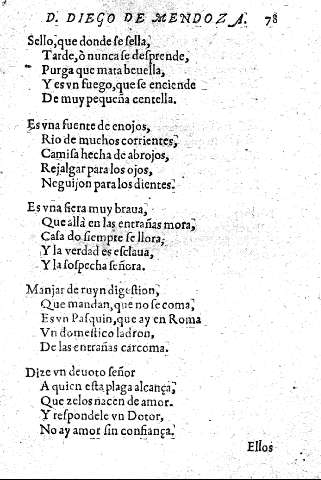 D. DIEGO DE MENDOZA. 78
Sello, que donde se sella,
Tarde, ò nunca se desprende,
Purga que mata beuella,
Y es vn fuego, que se enciende
De muy pequeña centella.
Es vna fuente de enojos,
Rio de muchos corrientes,
Camisa hecha de abrojos,
Rejalgar para los ojos,
Neguijon para los dientes.
Es vna fiera muy braua,
Que allà en las entrañas mora,
Casa do siempre se llora,
Y la verdad es esclaua,
Y la sospecha señora.
Manjar de ruyn digestion,
Que mandan, que no se coma,
Es vn Pasquin, que ay en Roma
Vn domestico ladron,
De las entrañas carcoma.
Dize vn deuoto señor
A quien esta plaga alcança,
Que zelos nacen de amor.
Y respondele vn Dotor,
No ay amor sin confiança.
Ellos